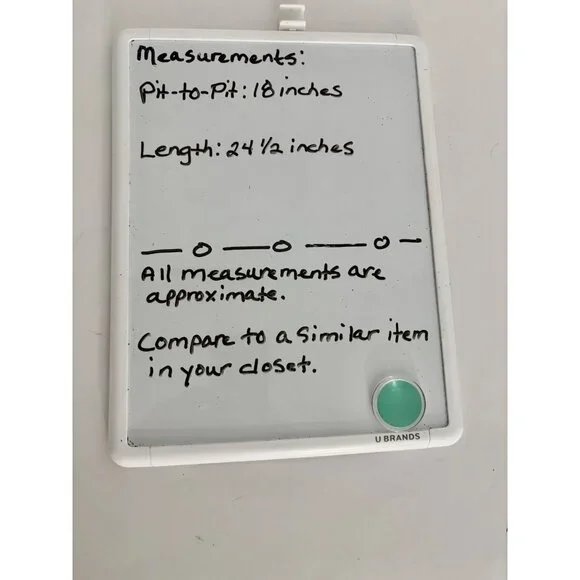 Measurements:
Pit-to-Pit: 18 inches
Length: 24 1/2 inches
All measurements are
approximate.
Compare to a similar item
in your closet.
U BRANDS